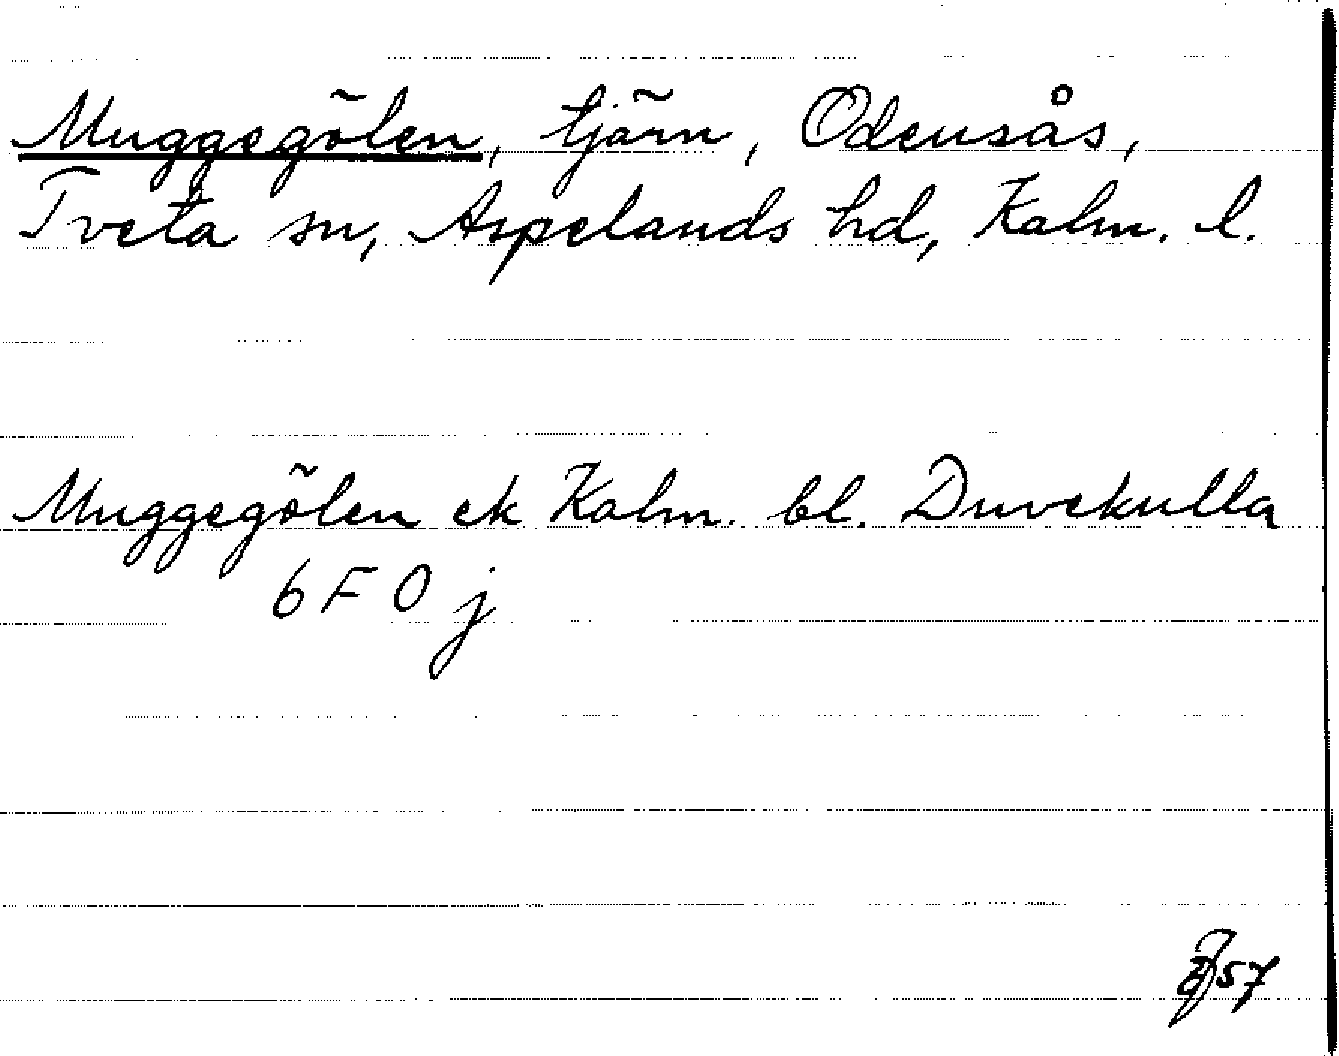 Muggegölen, tjärn, Odensås,
Tveta sn, Aspelands hd, Kalm. l.
Muggegölen ek Kalm. bl. Duvekulla
6 F 0 j
57